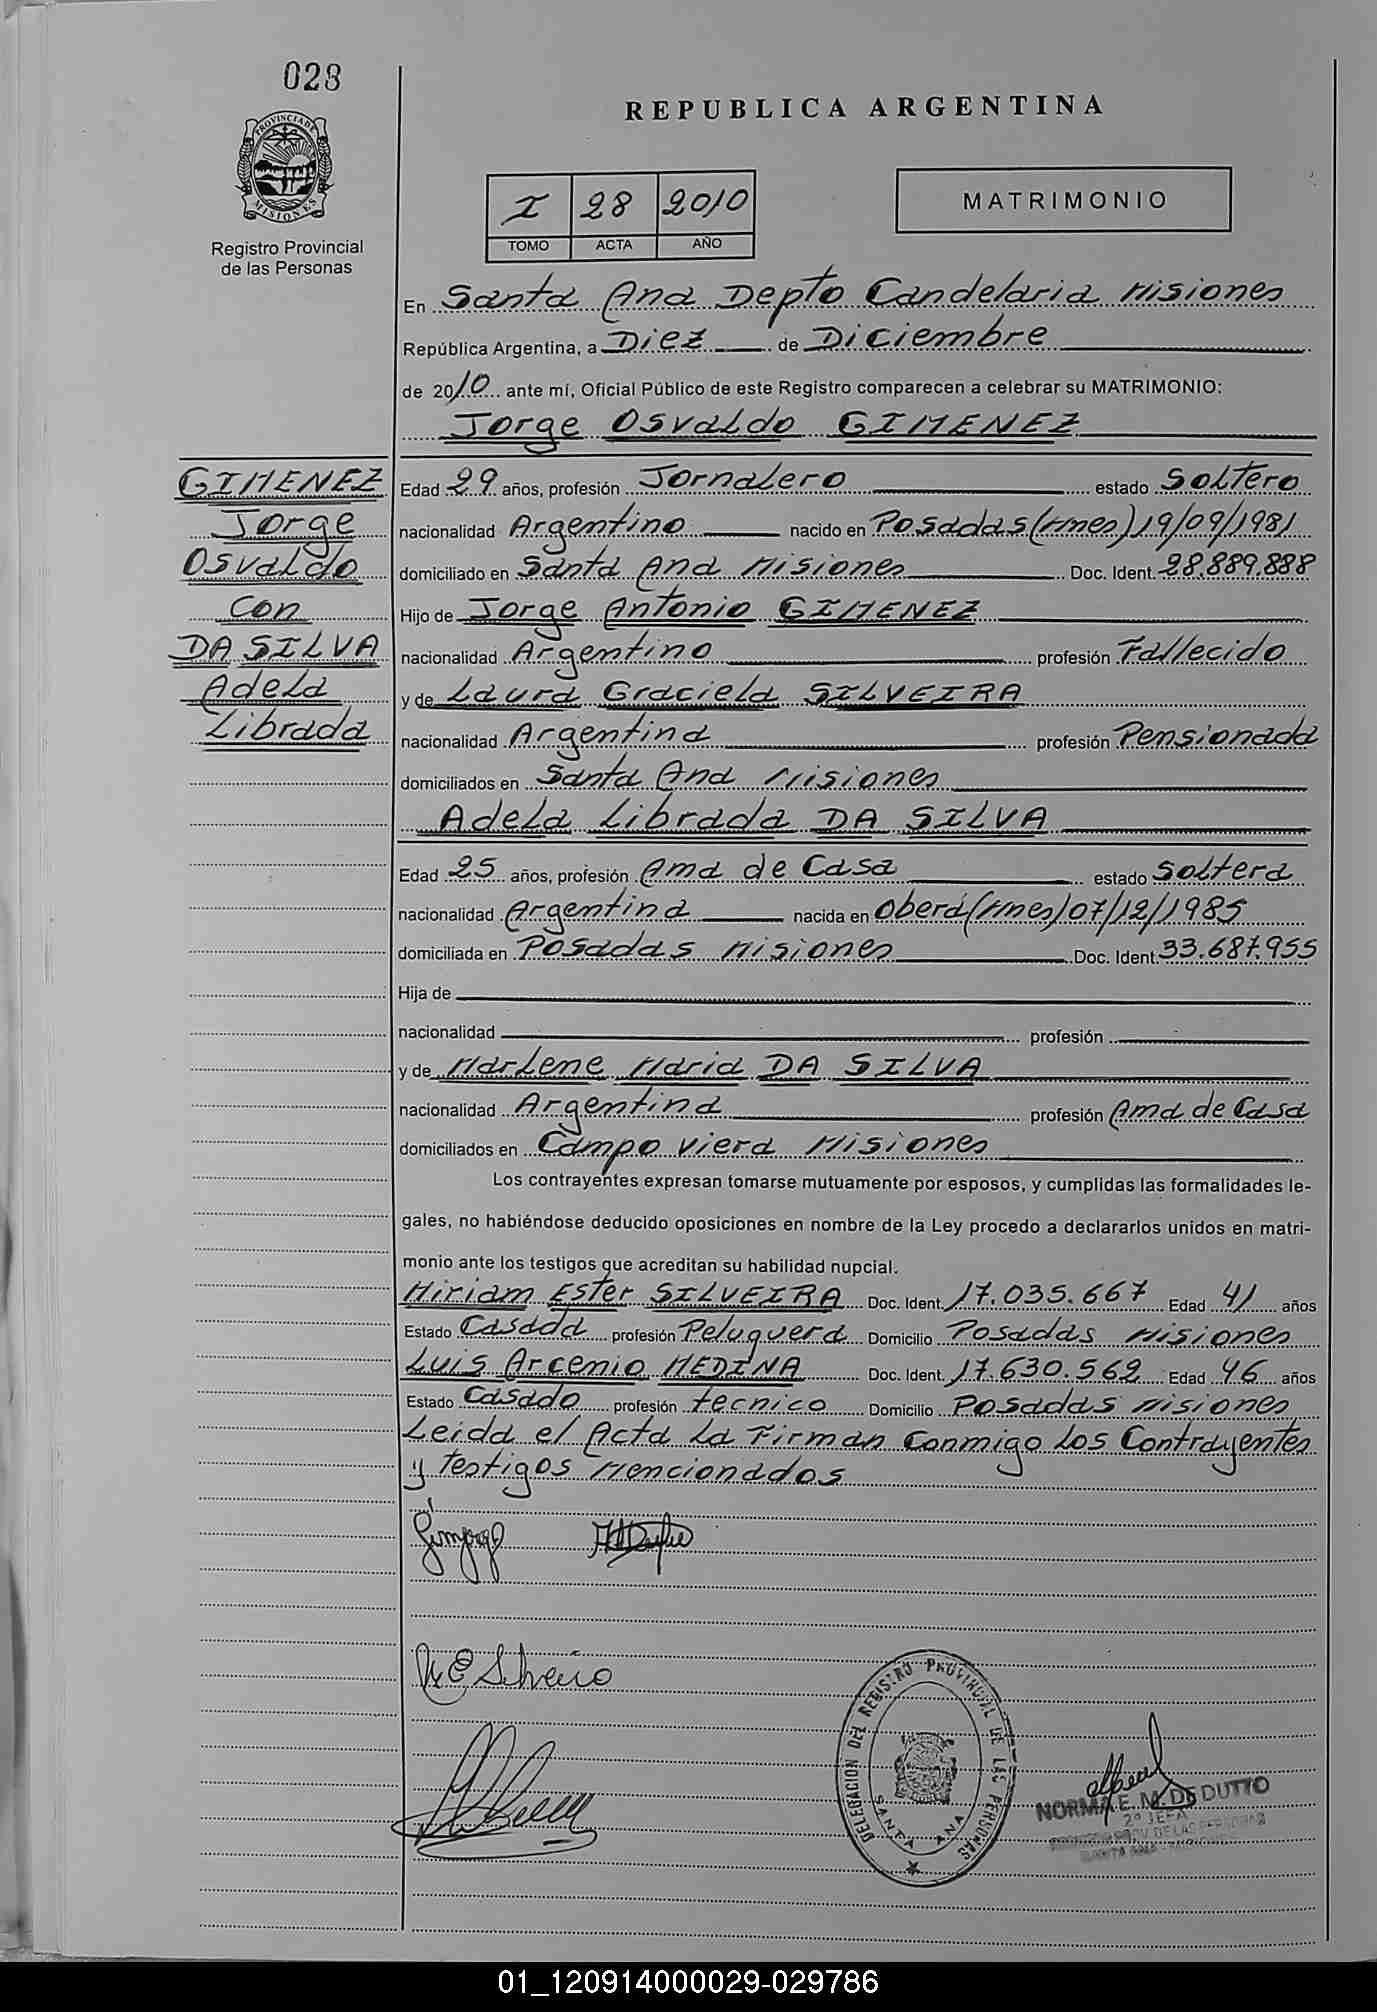 028
PROVINCIA DE
MISIONES
Registro Provincial
de las Personas
REPUBLICA ARGENTINA
I 28 2010
TOMO ACTA AÑO
MATRIMONIO
En Santa Ana Depto Candelaria Misiones
República Argentina, a Diez de Diciembre
de 2010 ante mí, Oficial Público de este Registro comparecen a celebrar su MATRIMONIO:
Jorge Osvaldo GIMENEZ
GIMENEZ
Jorge
Osvaldo
Con
DA SILVA
Adela
Librada
Edad 29 años, profesión Jornalero estado Soltero
nacionalidad Argentino nacido en Posadas (Mnes) 19/09/1981
domiciliado en Santa Ana Misiones Doc. Ident. 28.889.888
Hijo de Jorge Antonio GIMENEZ
nacionalidad Argentino profesión Fallecido
y de Laura Graciela SILVEIRA
nacionalidad Argentina profesión Pensionada
domiciliados en Santa Ana Misiones
Adela Librada DA SILVA
Edad 25 años, profesión Ama de Casa estado Soltera
nacionalidad Argentina nacida en Oberá (Mnes) 07/12/1985
domiciliada en Posadas Misiones Doc. Ident. 33.687.955
Hija de
nacionalidad profesión
y de Marlene Maria DA SILVA
nacionalidad Argentina profesión Ama de Casa
domiciliados en Campo Viera Misiones
Los contrayentes expresan tomarse mutuamente por esposos, y cumplidas las formalidades le-
gales, no habiéndose deducido oposiciones en nombre de la Ley procedo a declararlos unidos en matri-
monio ante los testigos que acreditan su habilidad nupcial.
Miriam Ester SILVEIRA Doc. Ident. 17.035.667 Edad 41 años
Estado Casada profesión Peluquera Domicilio Posadas Misiones
Luis Arcenio MEDINA Doc. Ident. 17.630.562 Edad 46 años
Estado Casado profesión tecnico Domicilio Posadas Misiones
Leida el Acta La Firman Conmigo Los Contrayentes
y testigos Mencionados
DELEGACION DEL REGISTRO PROVINCIAL DE LAS PERSONAS
SANTA ANA
NORMA E. M. DE DUTTO
2º JEFA
01_120914000029-029786